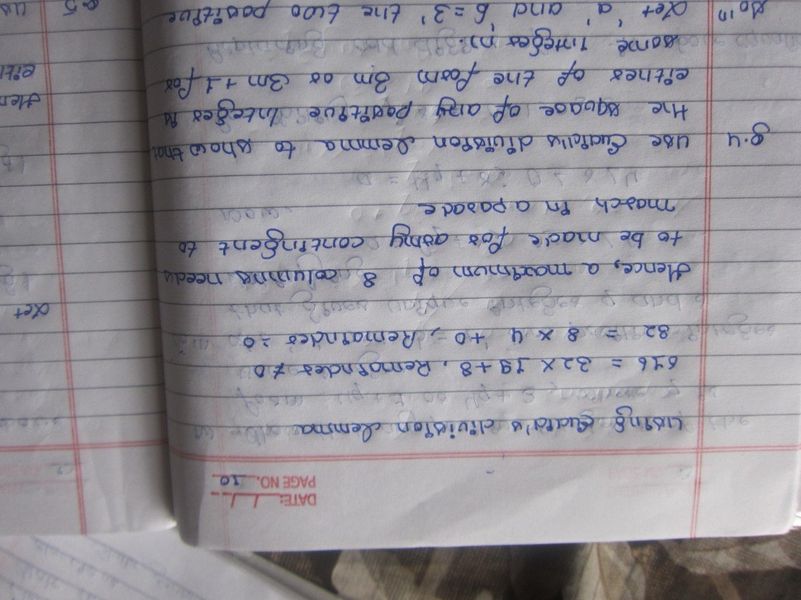 DATE: / /
PAGE NO. 10
using Euclid's division lemma
616 = 32 × 19 + 8, Remainder ≠ 0
32 = 8 × 4 + 0, Remainder = 0
Hence, a maximum of 8 columns needs
to be made for army contingent to
march in a parade
Q.4 Use Euclid's division lemma to show that
the square of any positive integer is
either of the form 3m or 3m + 1 for
some integer m.
Soln Let 'a' and 'b = 3' the two positive
Let
Hen
eith
Q.5 us